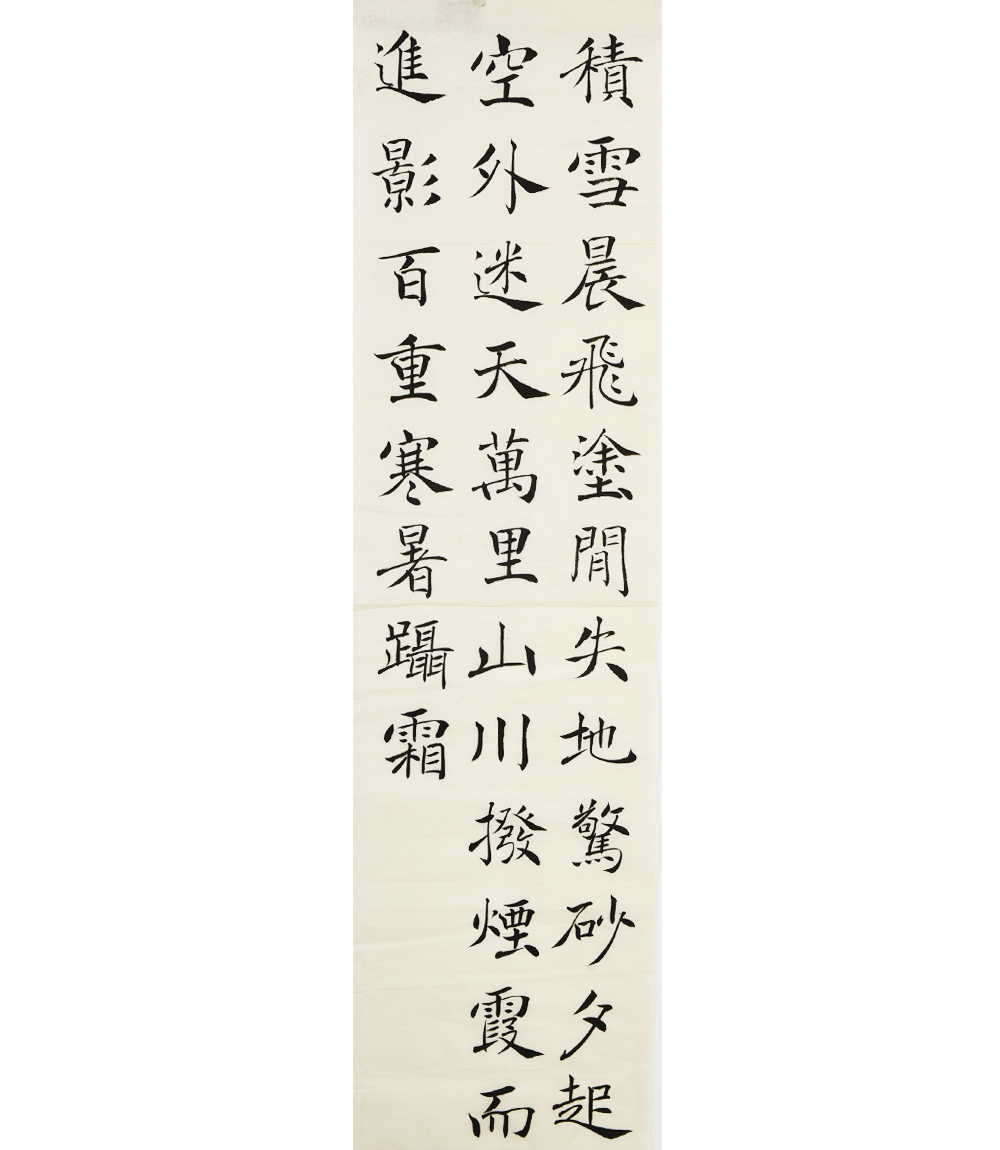 積雪晨飛塗閒失地驚砂夕起
空外迷天萬里山川撥煙霞而
進影百重寒暑躡霜